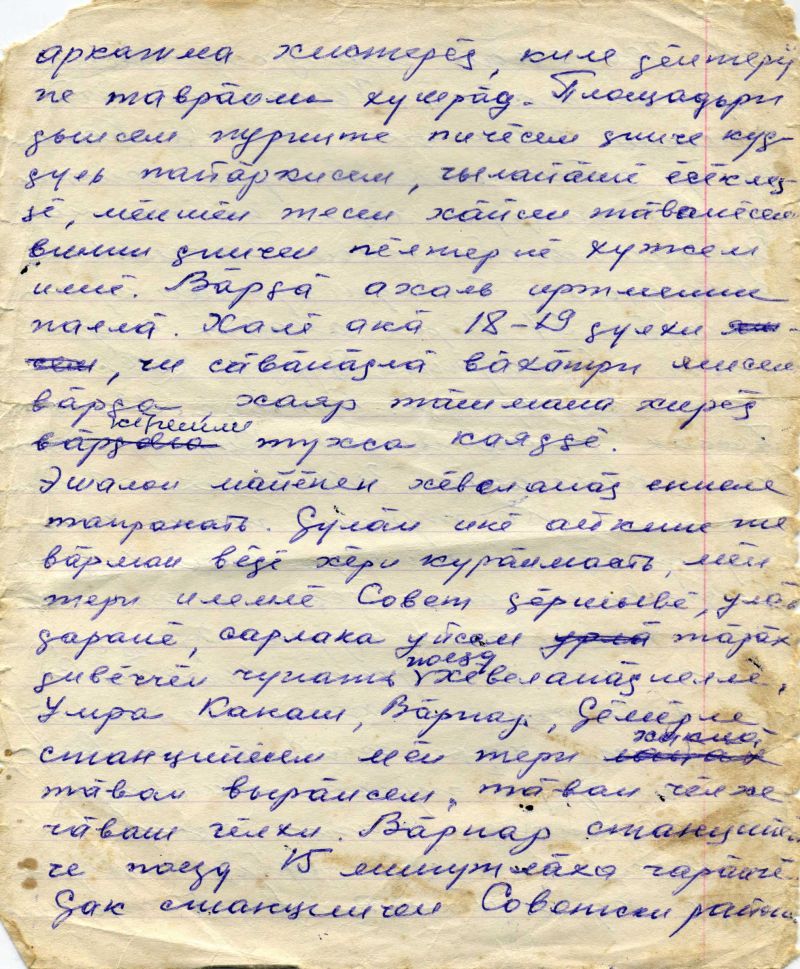 аркатма хистерӗҫ, киле ҫӗнтерӳ
пе таврӑнма хушрӑҫ. Площадьри
ҫынсем пуринте пичӗсем ҫинче куҫ-
ҫуль патӑркисем, чылайӑшӗ ӗсӗклеҫ
ҫӗ, мӗншӗн тесен хӑйсен тӑванӗсем
вилни ҫинчен пӗлтернӗ хутсем
илнӗ. Вӑрҫӑ ахаль иртменни
паллӑ. Халӗ акӑ 18–19 ҫулхи
, чи сӑвӑнӑҫлӑ вӑхӑтри ҫынсем
вӑрҫа хаяр тӑшмана хирӗҫ
ҫӗнейми тухса каяҫҫӗ.
Эшалон майӗпен хӗвеланӑҫ енне
талпӑнать. Ҫулӑн икӗ айккипе те
вӑрман вӗҫӗ хӗрри курӑнмасть, мӗн
тери илемлӗ Совет ҫӗршывӗ, улӑх
ҫаранӗ, сарлака уйсем тӑрӑх
ҫивӗччӗн чупать поезд хӗвеланӑҫнелле.
Умра Канаш, Вӑрнар, Ҫӗмӗрле
станцийӗсем мӗн тери хаклӑ
тӑван вырӑнсем, тӑван чӗлхе
чӑваш чӗлхи. Вӑрнар станцийӗн
че поезд 15 минутлӑха чарӑнчӗ.
Ҫак станцинчен Советски район